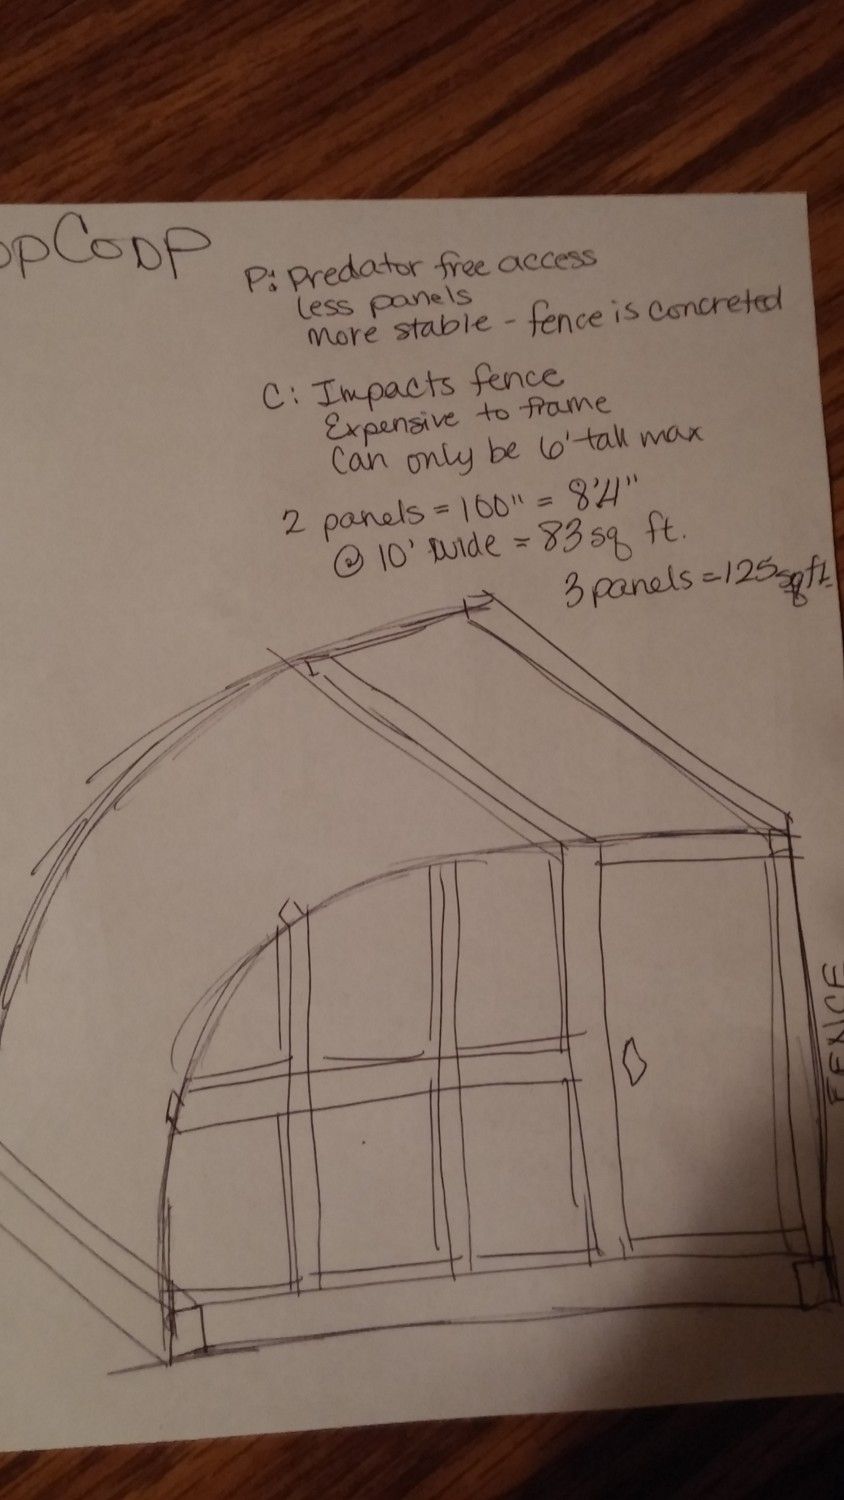 opCoop
P: Predator free access
less panels
more stable - fence is concreted
C: Impacts fence
Expensive to frame
Can only be 6' tall max
2 panels = 100" = 8'4"
@ 10' wide = 83 sq ft.
3 panels = 125 sq ft.
FENCE